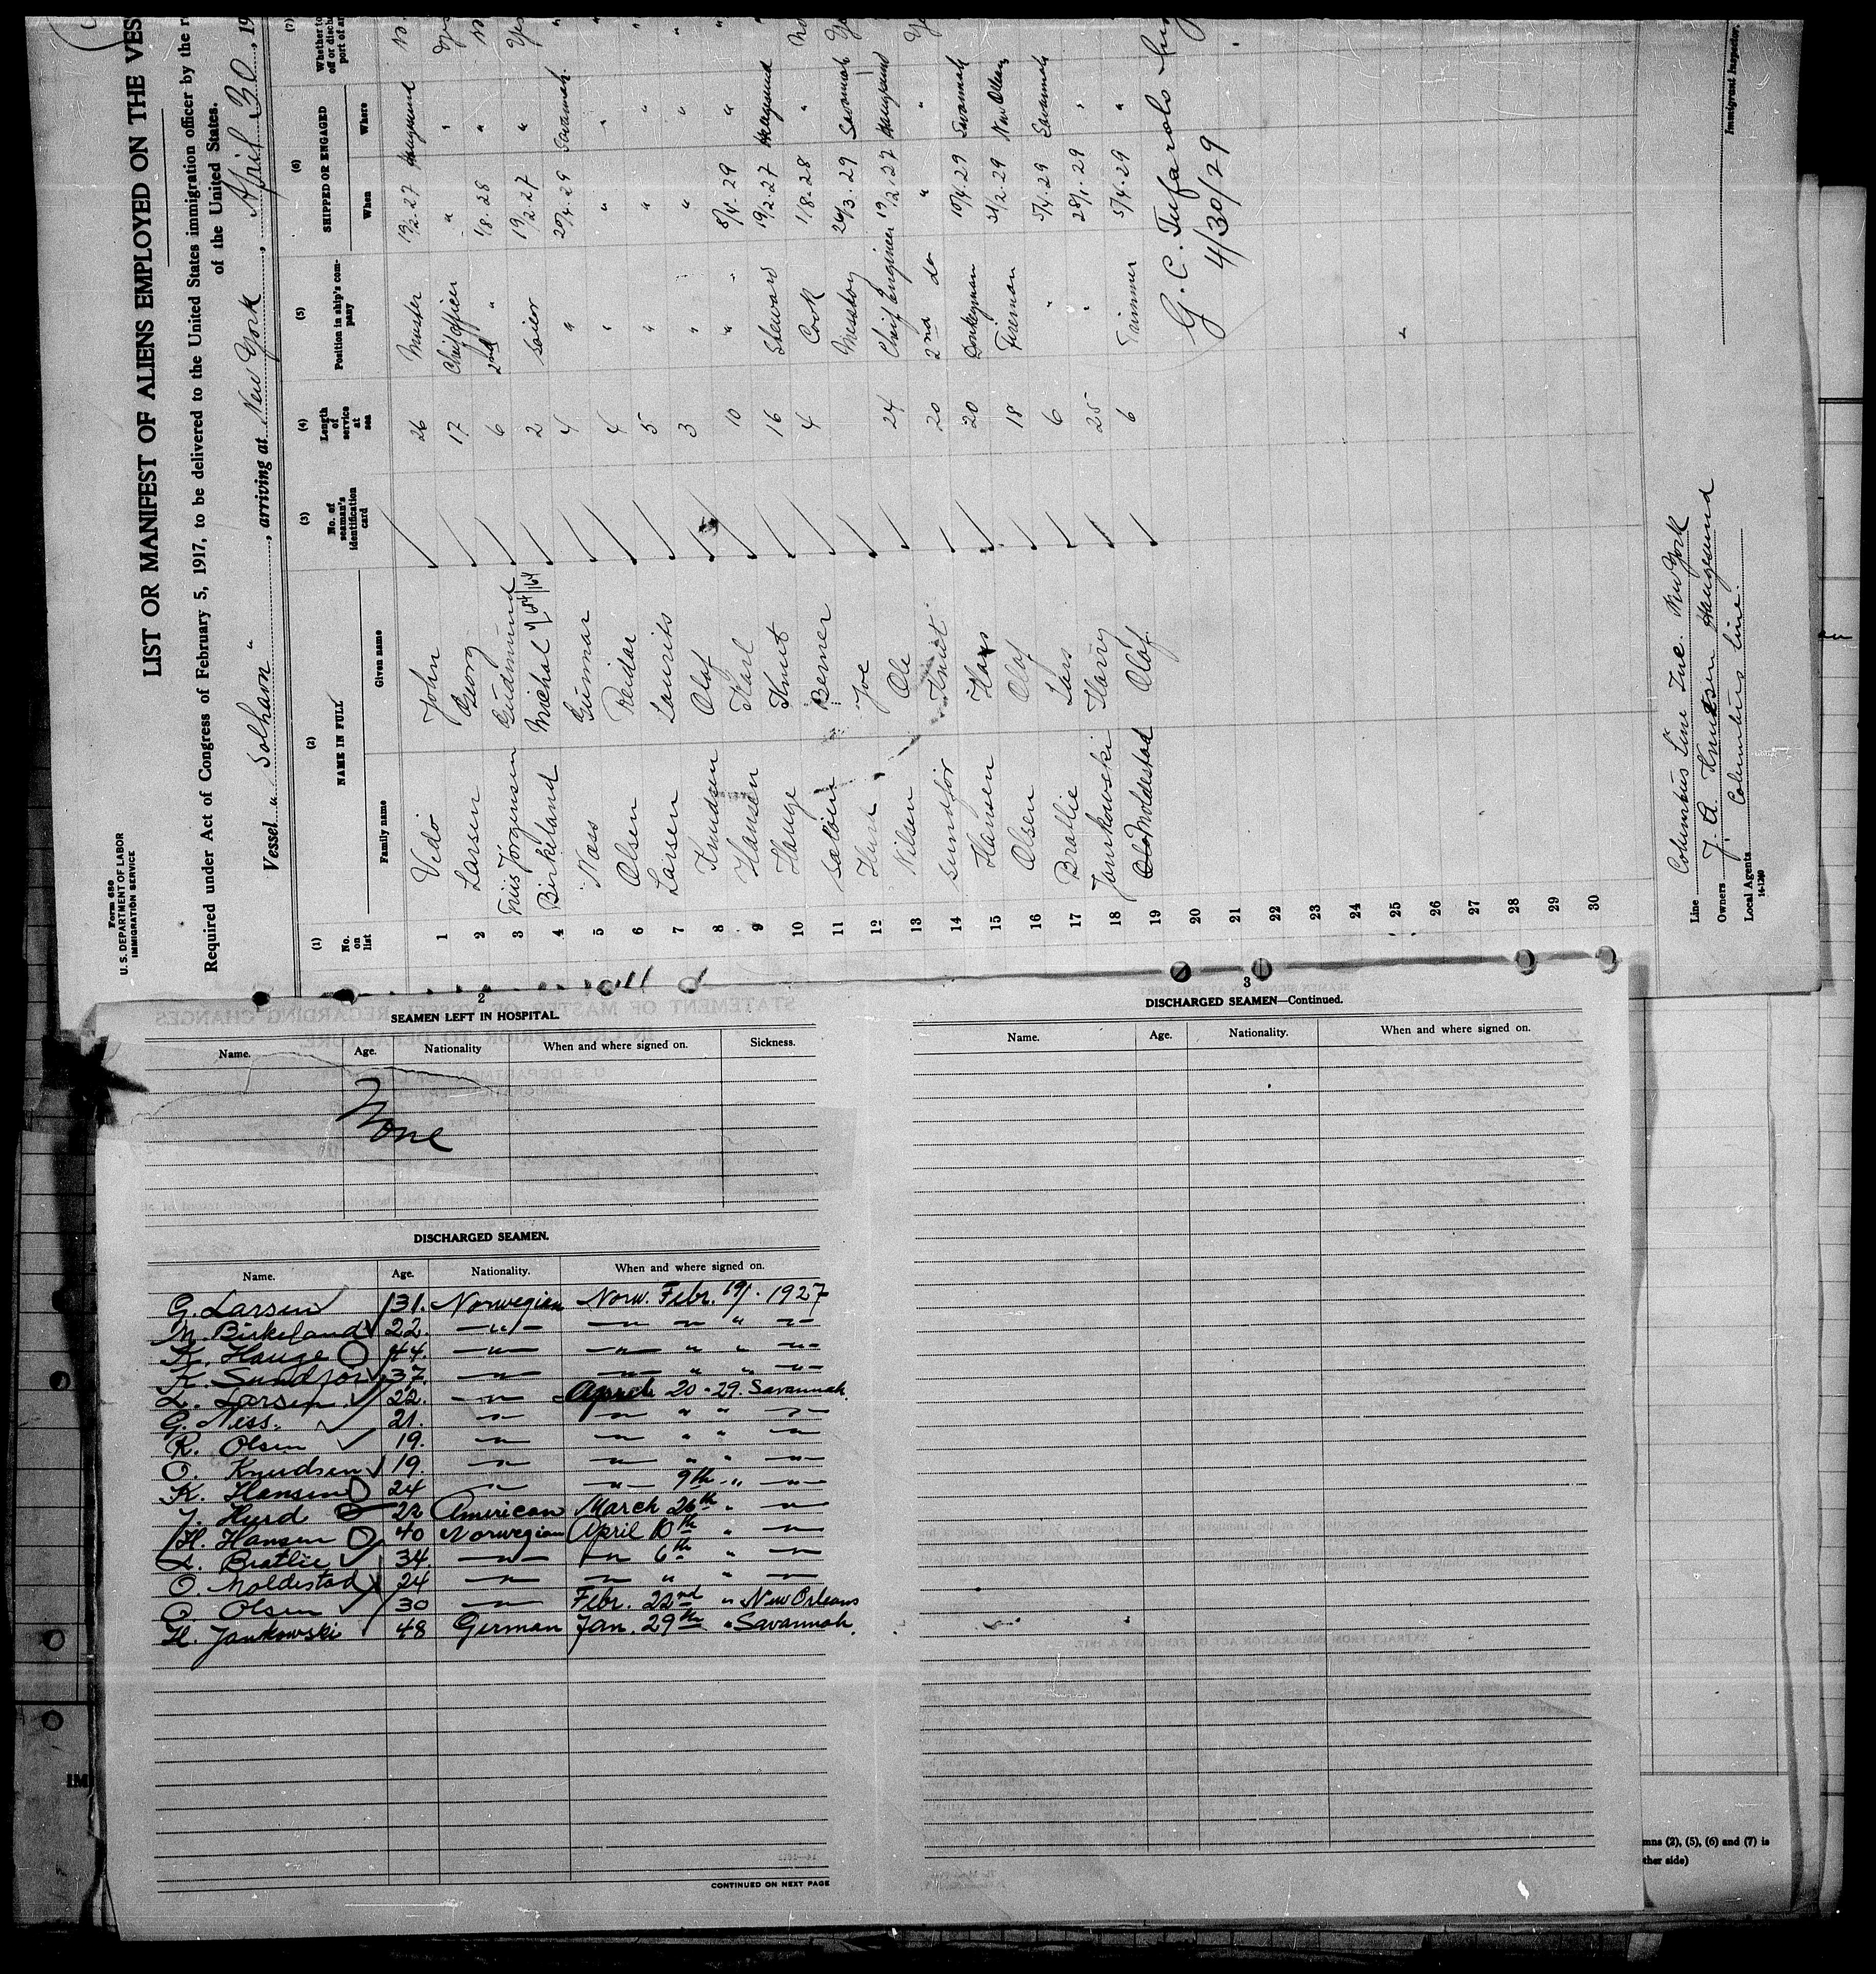 Form 680
U. S. DEPARTMENT OF LABOR
IMMIGRATION SERVICE
LIST OR MANIFEST OF ALIENS EMPLOYED ON THE VES
Required under Act of Congress of February 5, 1917, to be delivered to the United States immigration officer by the r
of the United States.
Vessel " Solhavn ", arriving at New York, April 30, 19
(1) (2) (3) (4) (5) (6) (7)
No. on list NAME IN FULL No. of seaman's identification card Length of service at sea Position in ship's company SHIPPED OR ENGAGED Whether to
off or disch
port of ar
Family name Given name When Where
1 Vedö John 26 Master 19/2.27 Haugesund
2 Larsen Georg 17 Chief Officer " "
3 Friis Jörgensen Gudmund 6 2nd " 1/8.28 "
4 Birkeland Michal 2 Sailor 19/2.27 "
5 Næss Gunnar 4 " 20/4.29 Savannah
6 Olsen Reidar 4 " " "
7 Larsen Laurits 5 " " "
8 Knudsen Olaf 3 " " "
9 Hansen Karl 10 " 8/4.29 "
10 Hauge Knut 16 Steward 19/2.27 Haugesund
11 Berner 4 Cook 1/8.28 "
12 Joe Messboy 26/3.29 Savannah
13 Nilsen Ole 24 Chief Engineer 19/2.27 Haugesund
14 Sundför Knut 20 2nd do " "
15 Hansen Hans 20 Donkeyman 10/4.29 Savannah
16 Olsen Olaf 18 Fireman New Orleans
17 Bratlie Lars 6 " 5/4.29 Savannah
18 Jankowski Harry 25 " 28/1.29 "
19 Moldestad Olaf 6 Trimmer 5/4.29 "
20
21
22
23
24
25
26
27
28
29
30
G. C. Tufarolo
4/30/29
Line Columbus Line Inc. New York
Owners J. A. Knudsen Haugesund
Local Agents Columbus Line.
14-1240
Immigrant Inspector.
2
SEAMEN LEFT IN HOSPITAL.
Name. Age. Nationality When and where signed on. Sickness.
None
DISCHARGED SEAMEN.
Name. Age. Nationality. When and where signed on.
G. Larsen 31. Norwegian Norw. Febr. 19/. 1927
M. Birkeland 22. —"— —"— " " —"—
K. Hauge 44. —"— —"— " " —"—
K. Sundför 37. —"— —"— " " —"—
L. Larsen 22. —"— April 20 - 29. Savannah.
G. Ness. 21. —"— —"— " " —"—
R. Olsen 19. —"— —"— " " —"—
O. Knudsen 19. —"— —"— " " —"—
K. Hansen 24 —"— —"— 9th " —"—
J. Hurd 22 American March 26th " —"—
H. Hansen 40 Norwegian April 10th " —"—
L. Bratlie 34. —"— —"— 6th " —"—
O. Moldestad 24 —"— —"— " " —"—
O. Olsen 30 —"— Febr. 22nd " New Orleans
H. Jankowski 48 German Jan. 29th " Savannah.
CONTINUED ON NEXT PAGE
3
DISCHARGED SEAMEN—Continued.
Name. Age. Nationality. When and where signed on.
mns (2), (5), (6) and (7) is
ther side)